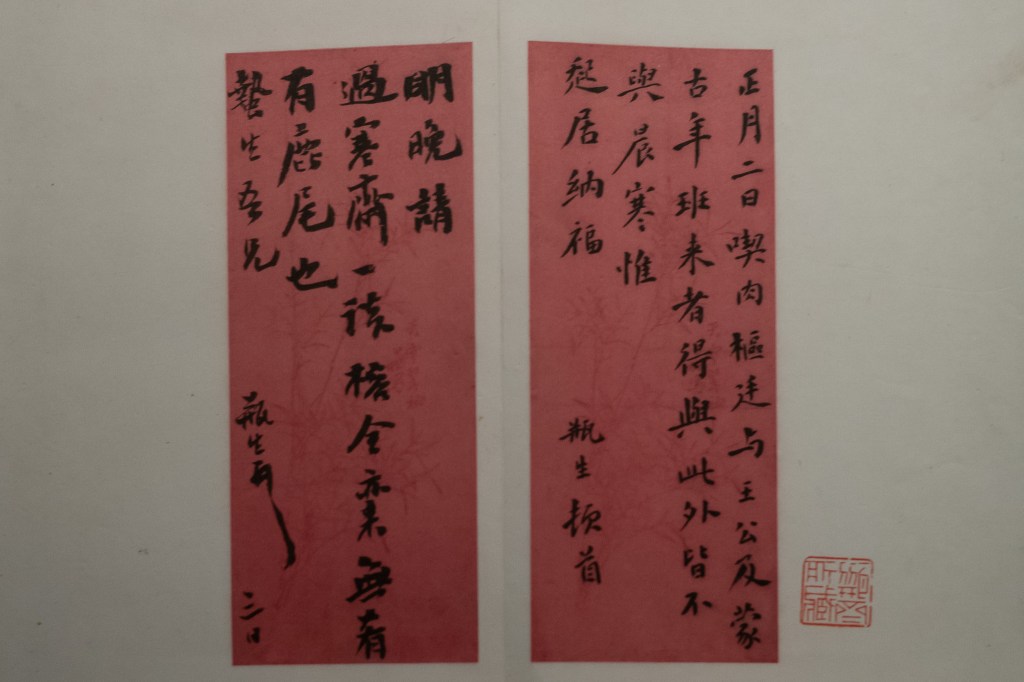 正月二日喫肉樞廷与王公及蒙
古年班来者得與此外皆不
與晨寒惟
起居納福
瓶生頓首
明晚請
過寒齋一談稽令亦来無肴
有鹿尾也
蟄生吾兄
瓶生
二日
所藏